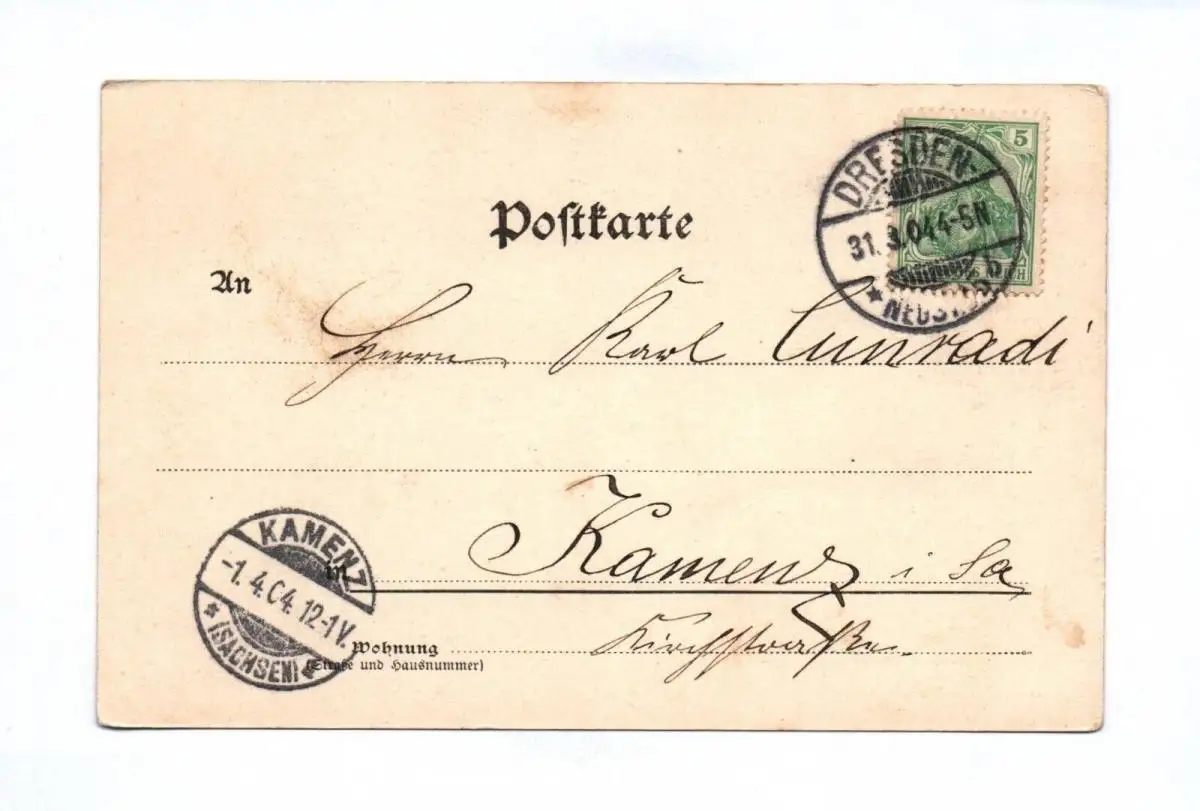 Postkarte
5
DRESDEN-
31.3.04 4-5N
* NEUST. 6b
An
Herrn Karl Cunradi
Kamenz i Sa
in
KAMENZ
-1.4.04.12-1V.
* (SACHSEN) *
Wohnung
(Straße und Hausnummer)
Kirchstraße.